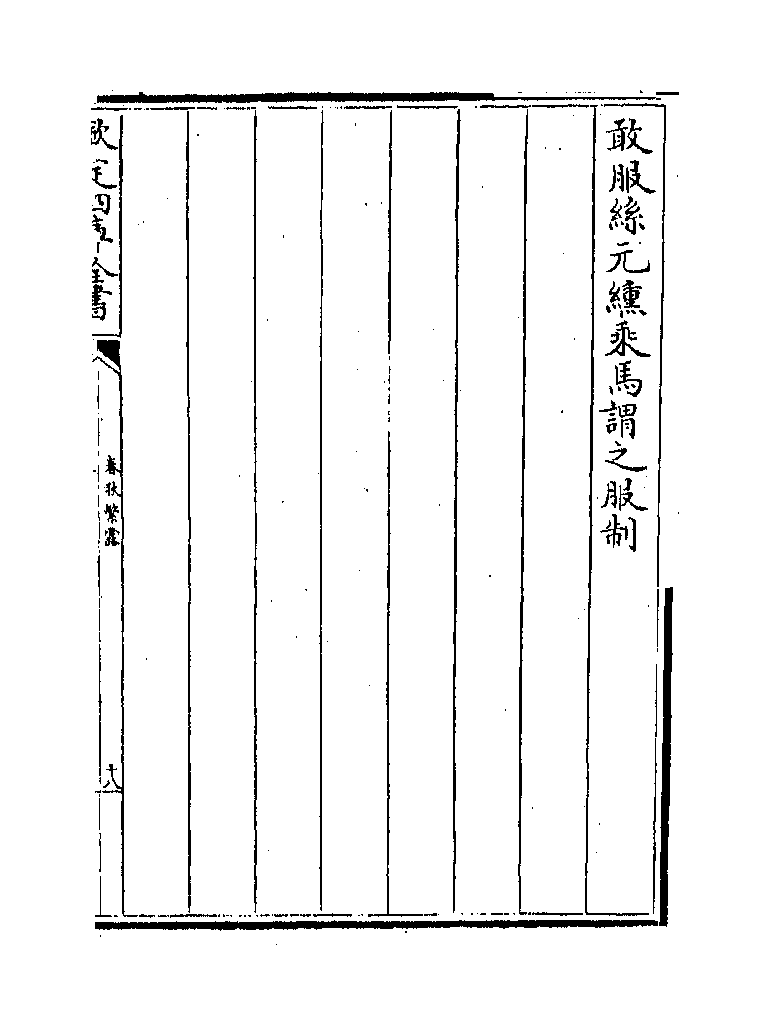 敢服絲元纁乘馬謂之服制
欽定四庫全書
春秋繁露
十八